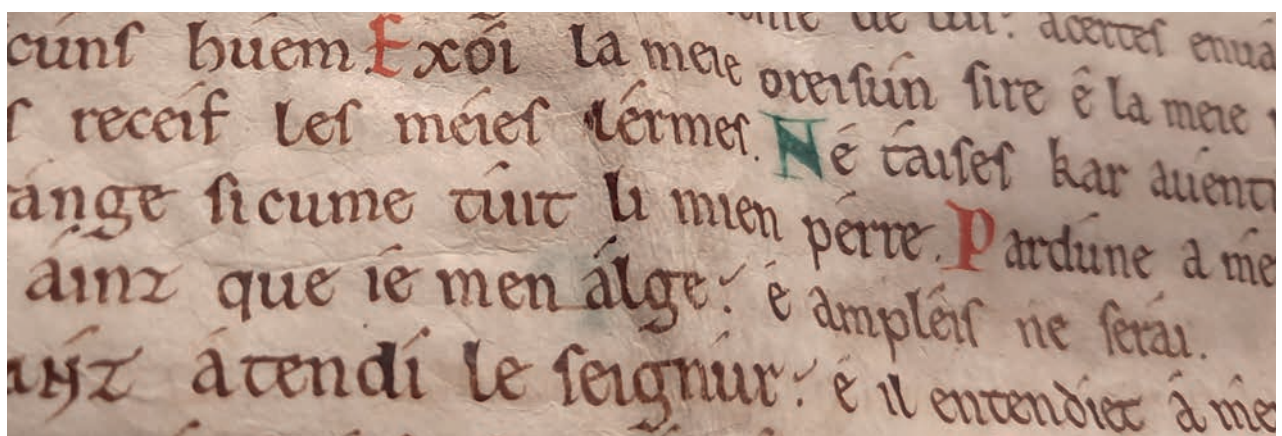 de lui: acertes
huem Exoi la meie oreisun sire é la meie
receif les méies lérmes. Né taises kar
ánge sicume túit li mien pérre. Pardúne a mé
áinz que ié men álge: é ampléis ne serái.
átendi le seignúr: é il entendiet á mé